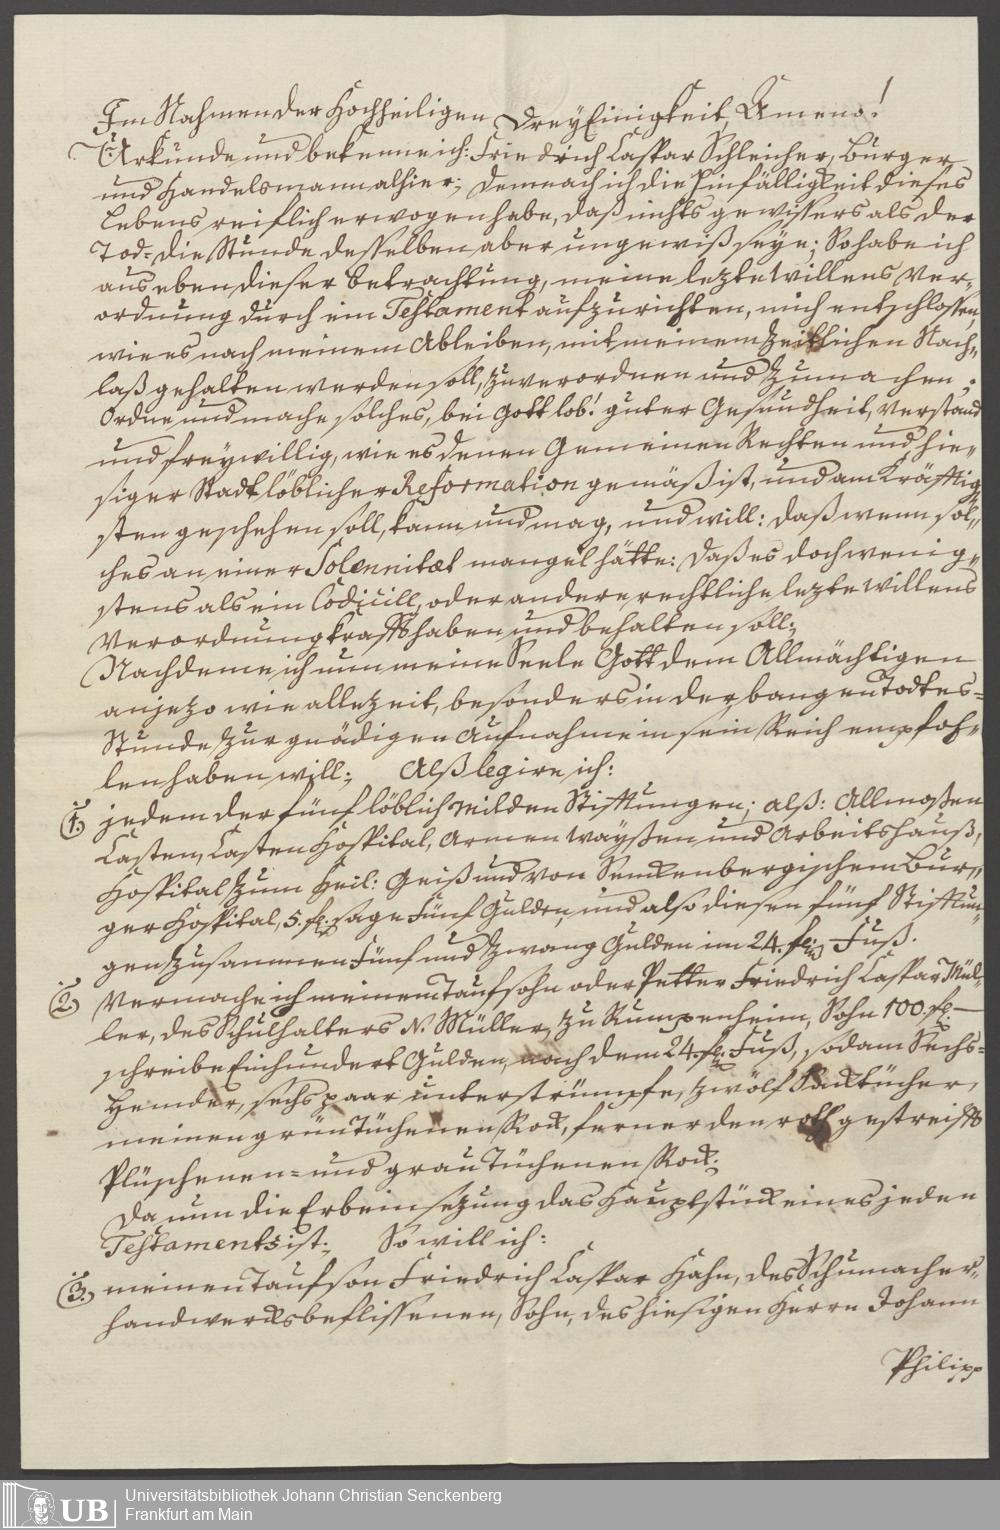 Im Nahmen der Hochheiligen DreyEinigkeit, Amen!
Urkunde und bekenne ich: Friedrich Caspar Schleicher, Burger
und Handelsmann alhier; Demnach ich die Hinfälligkeit dieses
Lebens reiflich erwogen habe, daß nichts gewissers als der
Tod: die Stunde desselben aber ungewiß seye; So habe ich
aus eben dieser Betrachtung, meine lezte Willens Ver„
ordnung durch ein Testament aufzurichten, mich entschlossen,
wie es nach meinem Ableiben, mit meinem Zeitlichen Nach„
laß gehalten werden soll, zu verordnen und zu machen;
Ordne und mache solches, bei Gott lob! guter Gesundheit, Verstand
und freywillig, wie es denen Gemeinen Rechten und hie„
siger Stadt löblicher Reformation gemäß ist, und am Kräfftig„
sten geschehen soll, kann und mag, und will: daß wenn sol„
ches an einer Solennitæt mangel hätte: daß es doch wenig„
stens als ein Codicill, oder andere rechtliche lezte Willens
Verordnung krafft haben und behalten soll;
Nachdeme ich nun meine Seele Gott dem Allmächtigen
anjezo wie allezeit, besonders in der bangen Todtes=
Stunde zur gnädigen Aufnahme in sein Reich empfoh„
len haben will; Alß legire ich:
1.) jedem der fünf löblich milden Stifftungen; alß: Allmoßen
Casten, Casten Hospital, Armen Wayßen und Arbeitshauß,
Hospital zum Heil: Geiß und von Senckenbergischem Bur„
ger Hospital, 5. fl. sage Fünf Gulden, und also diesen fünf Stifftun„
gen zusammen Fünf und Zwanzig Gulden im 24. fl. Fuß.
2.) Vermache ich meinem Taufsohn oder Petter Friedrich Caspar Mül„
ler, des Schulhalters N. Müller, zu Rumpenheim, Sohn 100. fl. —
schreibe Einhundert Gulden, nach dem 24. fl. Fuß, sodann Sechs=
Hemder, sechs paar unterstrümpfe, zwölf Sacktücher,
meinen grün Tüchenen Rock, ferner den roth gestreifft
Plüschenen= und grau Tüchenen Rock;
Da nun die Erbeinsezung das Hauptstück eines jeden
Testaments ist; So will ich:
3.) meinen Taufson Friedrich Caspar Hahn, des Schumacher„
handwercksbeflissenen, Sohn, des hiesigen Herrn Johann
Philipp
Universitätsbibliothek Johann Christian Senckenberg
UB Frankfurt am Main